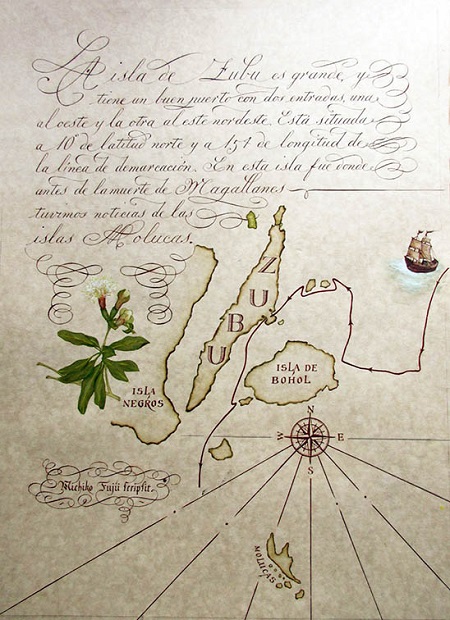 La isla de Zubu es grande, y
tiene un buen puerto con dos entradas, una
al oeste y la otra al este nordeste. Está situada
a 10° de latitud norte y a 154° de longitud de
la línea de demarcación. En esta isla fue donde
antes de la muerte de Magallanes
tuvimos noticias de las
islas Molucas.
ZUBU
ISLA DE
BOHOL
ISLA
NEGROS
N
W
E
S
Michiko Fujii scripsit.
MOLUCAS